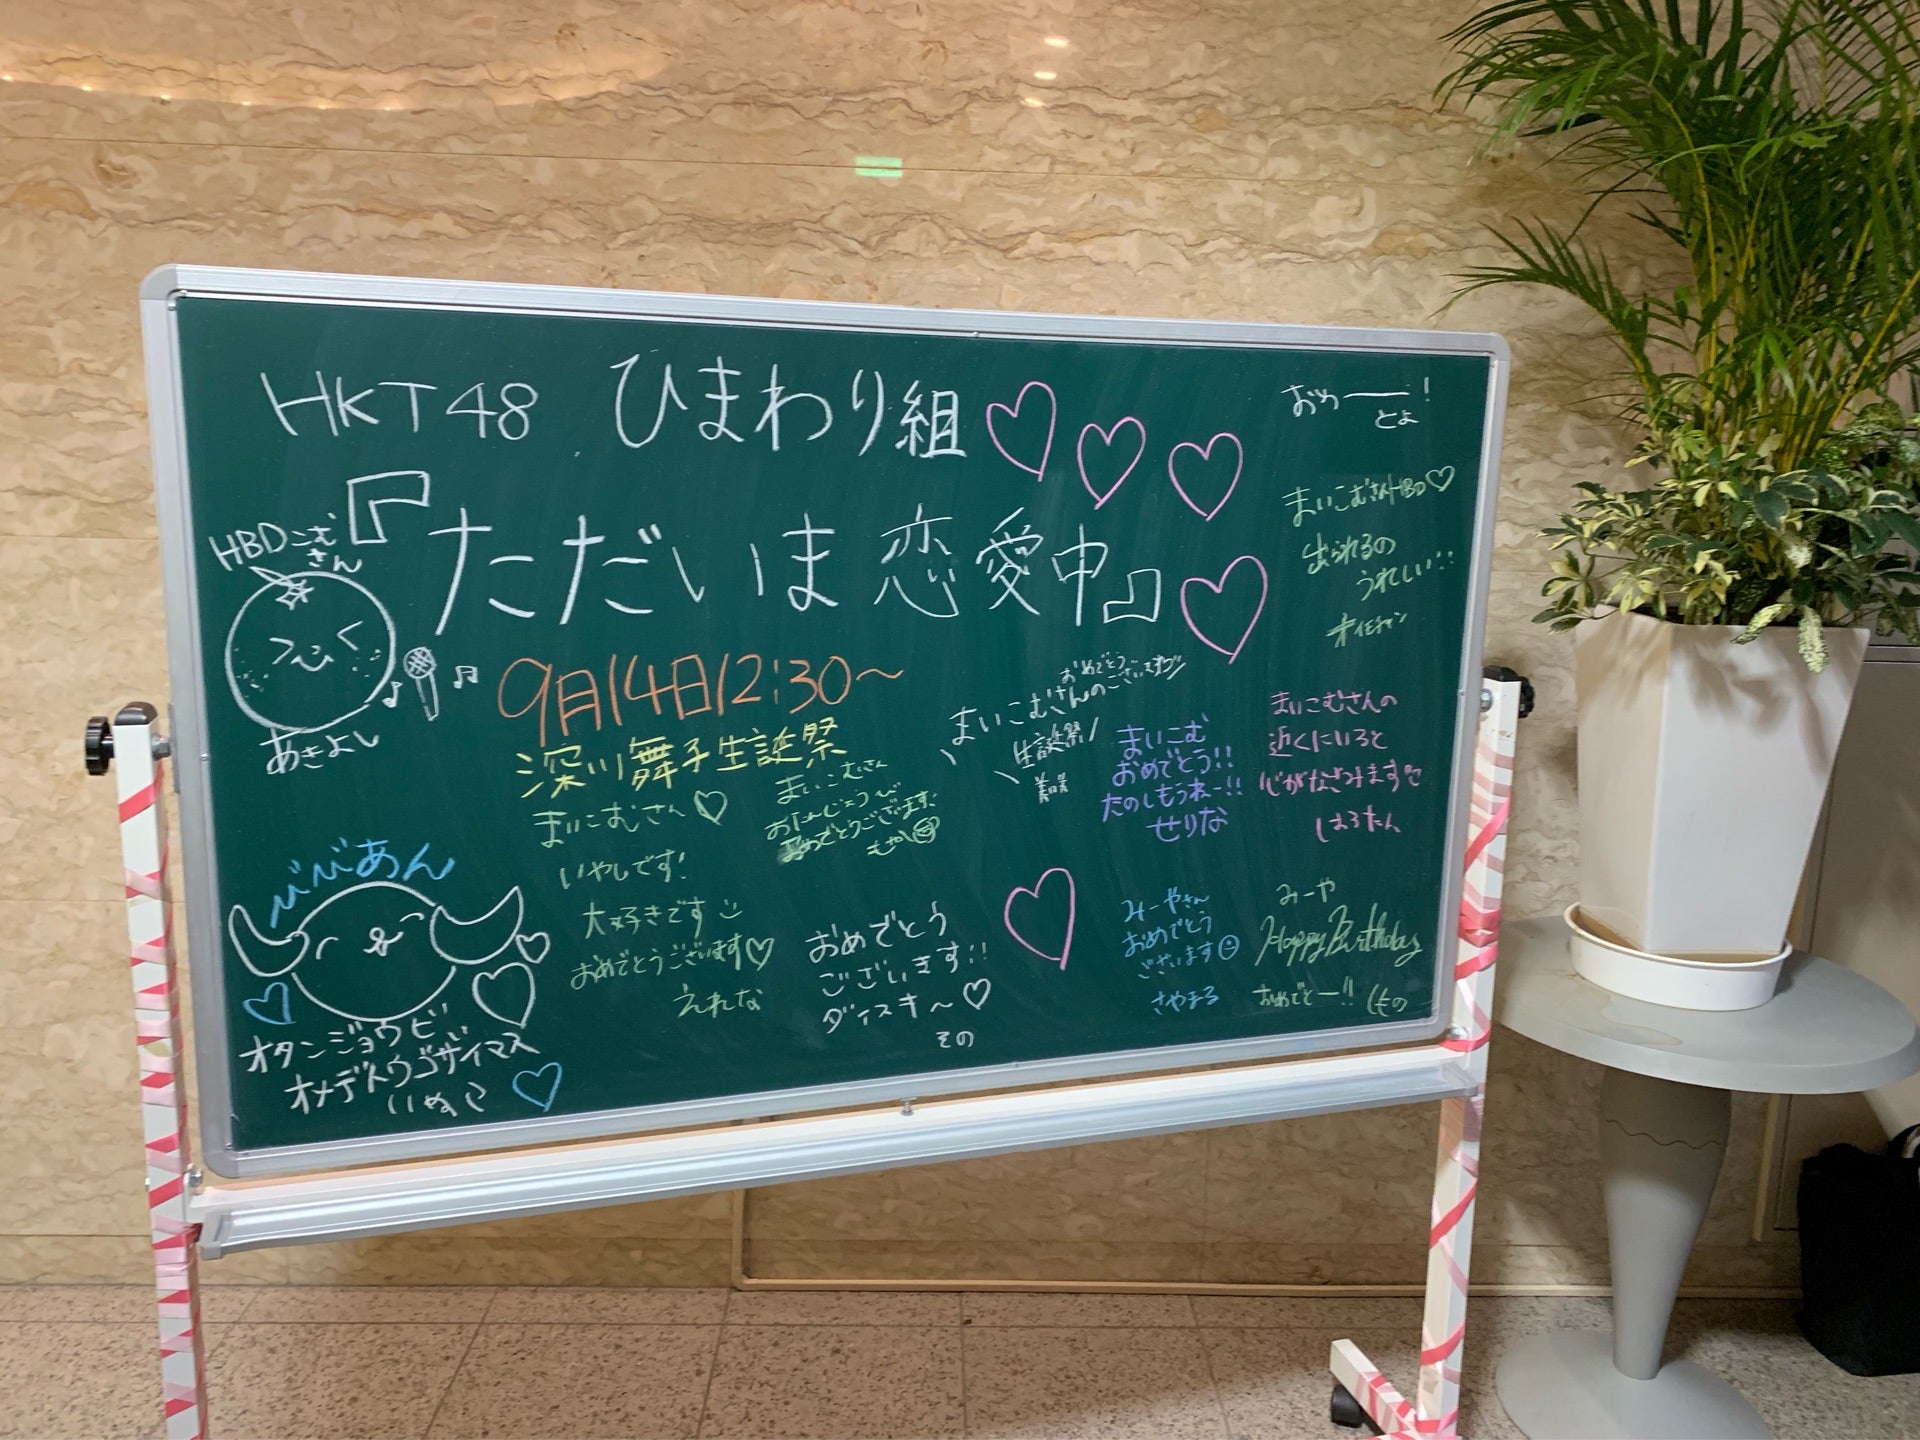 HKT48 ひまわり組
『ただいま恋愛中』
9月14日12:30〜
深川舞子生誕祭
HBDこむ
さん
あきよし
びびあん
オタンジョウビ
オメデトウゴザイマス
いぬこ
まいこむさん♡
いやしです!
大好きです
おめでとうございます♡
えれな
まいこむさん
おたんじょうび
おめでとうございます
もやし
おめでとう
ございます!!
ダイスキ〜♡
その
おめでとう
ございます
まいこむさんの
生誕祭
美咲
まいこむ
おめでとう!!
たのしもうねー!!
せりな
みーやさん
おめでとう
ございます
さやまる
おめ――!
とよ
まいこむさんHBD♡
出られるの
うれしい!!
まいこむさんの
近くにいると
心がなごみます
しほろたん
みーや
Happy Birthday
おめでとー!!